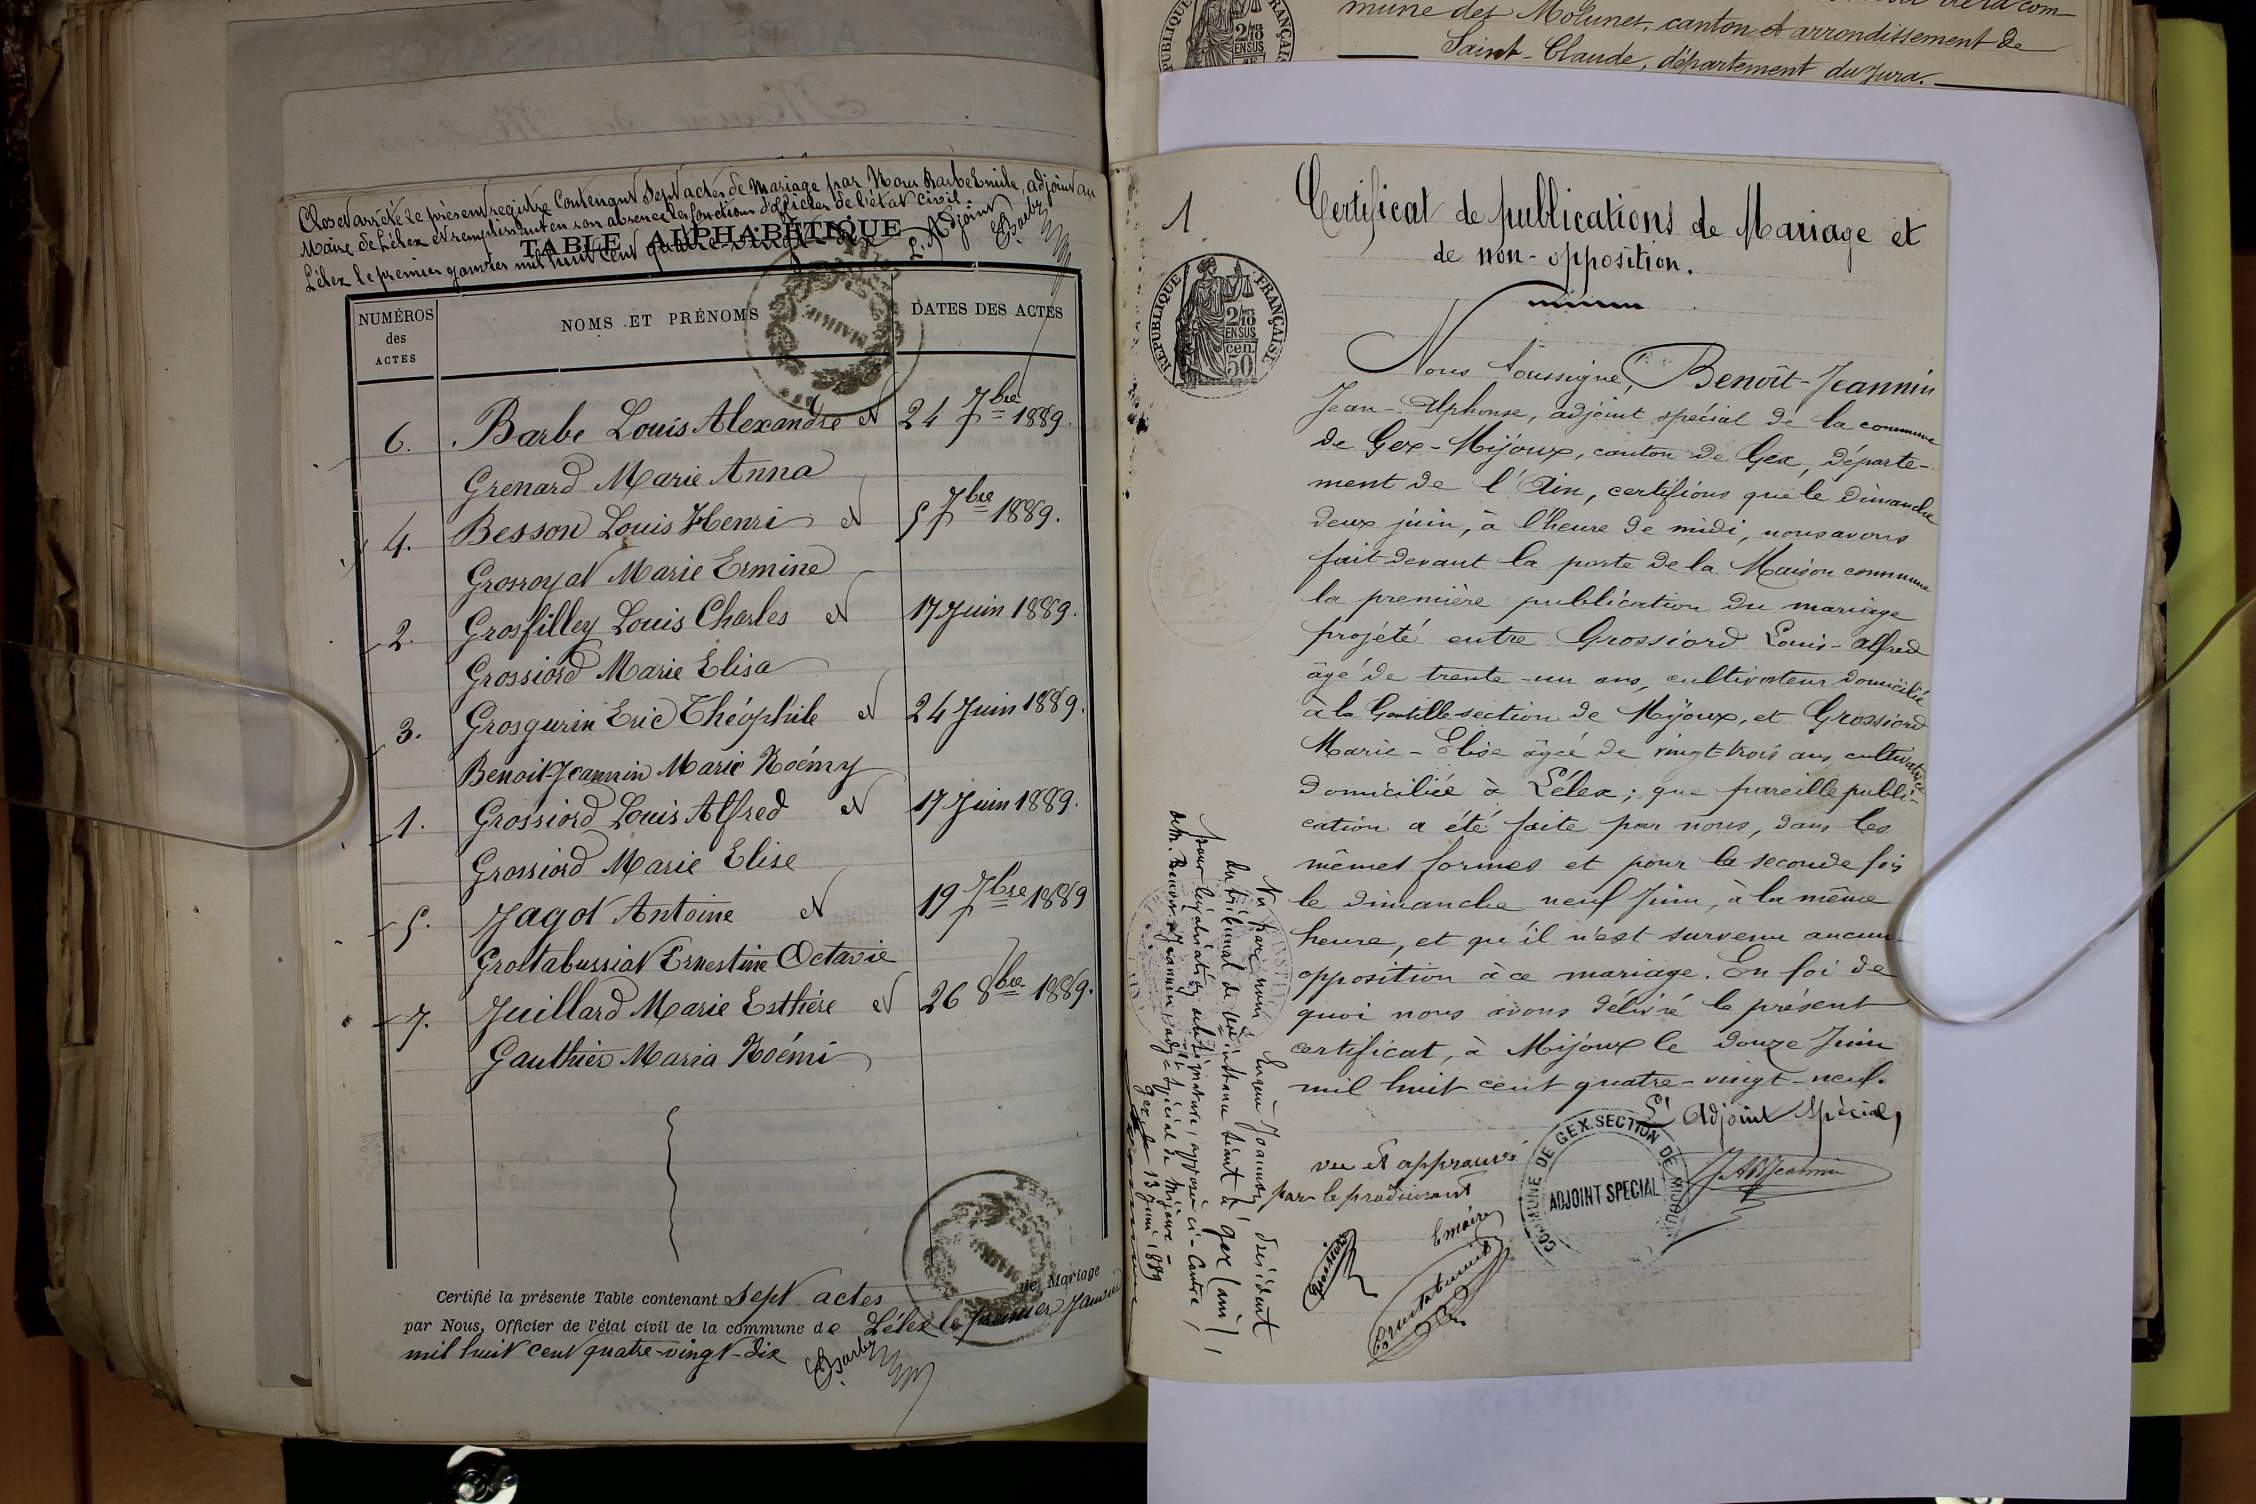 Clos et arrêté le présent registre contenant sept actes de mariage par Nous Barbe Emile, adjoint au
Maire de Lélex et remplissant en son absence les fonctions d'officier de l'état civil.
Lélex le premier janvier mil huit cent quatre-vingt-dix L'Adjoint
EBarbe
TABLE ALPHABÉTIQUE
NUMÉROS des ACTES
NOMS ET PRÉNOMS
DATES DES ACTES
MAIRIE
6. Barbe Louis Alexandre et 24 7bre 1889.
Grenard Marie Anna
4. Besson Louis Henri et 5 7bre 1889.
Grosroyat Marie Ermine
2. Grosfilley Louis Charles et 17 Juin 1889.
Grossiord Marie Elisa
3. Grosgurin Eric Théophile et 24 Juin 1889.
Benoit-Jeannin Marie Noémy
1. Grossiord Louis Alfred et 17 Juin 1889.
Grossiord Marie Elise
5. Jagot Antoine et 19 7bre 1889
Grostabussiat Ernestine Octavie
7. Juillard Marie Esthère et 26 8bre 1889.
Gauthier Maria Noémi
Certifié la présente Table contenant sept actes de Mariage
par Nous, Officier de l'état civil de la commune de Lélex le premier Janvier
mil huit cent quatre-vingt-dix
EBarbe
MAIRIE
mune des Molunes, canton et arrondissement de
Saint-Claude, département du Jura.
1
Certificat de publications de Mariage et
de non-opposition.
RÉPUBLIQUE FRANÇAISE
2/10 EN SUS
50 cen.
Nous soussigné, Benoît-Jeannin
Jean-Alphonse, adjoint spécial de la commune
de Gex-Mijoux, canton de Gex, départe-
ment de l'Ain, certifions que le dimanche
deux juin, à l'heure de midi, nous avons
fait devant la porte de la Maison commune
la première publication du mariage
projété entre Grossiord Louis-Alfred
âgé de trente-un ans, cultivateur domicilié
à la Gentille section de Mijoux, et Grossiord
Marie-Elise âgée de vingt-trois ans, cultivatrice
domiciliée à Lélex; que pareille publi-
cation a été faite par nous, dans les
mêmes formes et pour la seconde fois
le dimanche neuf Juin, à la même
heure, et qu'il n'est survenu aucun
opposition à ce mariage. En foi de
quoi nous avons délivré le présent
certificat, à Mijoux le douze Juin
mil huit cent quatre-vingt-neuf.
L'Adjoint Spécial,
JABJeannin
COMMUNE DE GEX. SECTION DE MIJOUX
ADJOINT SPECIAL
vu et approuvé
par le produisant
Grossiord
E maire
Vu par nous Eugène président
du tribunal de 1ère instance séant à Gex (Ain)
pour légalisation de la signature, apposée ci-contre,
de M. Benoit-Jeannin, adjt spécial de Mijoux-
Gex le 13 Juin 1889